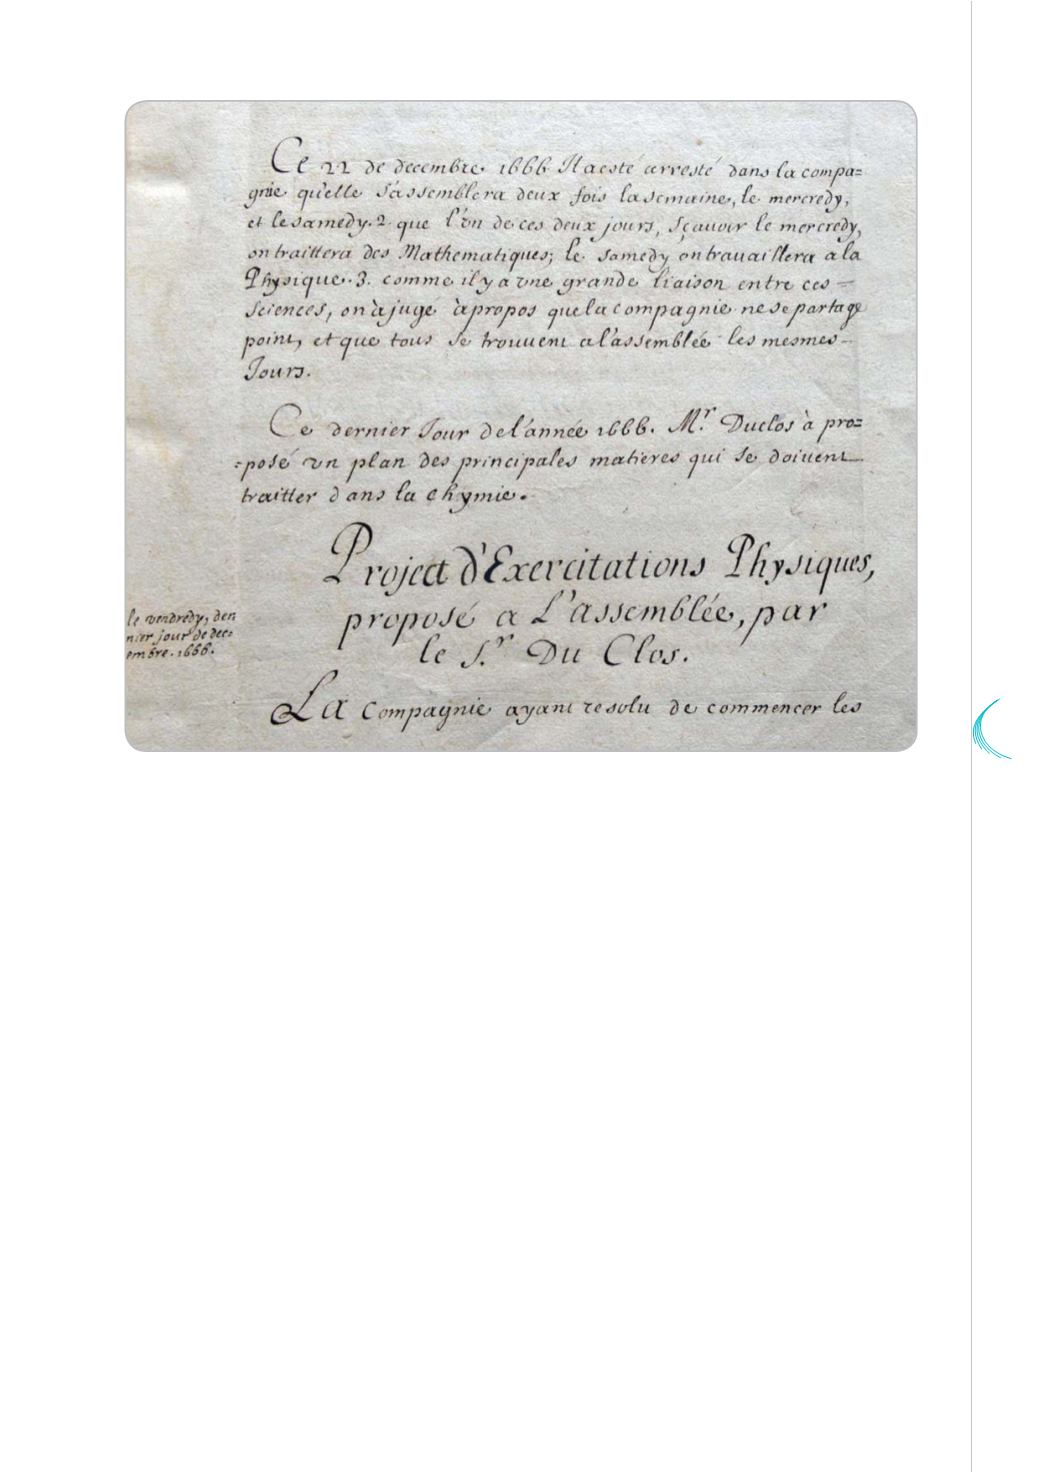 Ce 22 de decembre 1666 Il a esté arresté dans la compa=
gnie qu'elle s'assemblera deux fois la semaine, le mercredy,
et le samedy. 2. que l'vn de ces deux jours, sçauoir le mercredy,
on traittera des Mathematiques; le samedy on trauaillera a la
Physique. 3. comme il y a vne grande liaison entre ces
Sciences, on à jugé à propos que la compagnie ne se partage
point, et que tous se trouuent a l'assemblée les mesmes
Jours.
Ce dernier Jour de l'année 1666. Mr. Duclos à pro=
=posé vn plan des principales matieres qui se doiuent
traitter dans la chymie.
Project d'Exercitations Physiques,
proposé a L'assemblée, par
le Sr. Du Clos.
le vendredy, der
nier jour de dec=
embre. 1666.
La Compagnie ayant resolu de commencer les